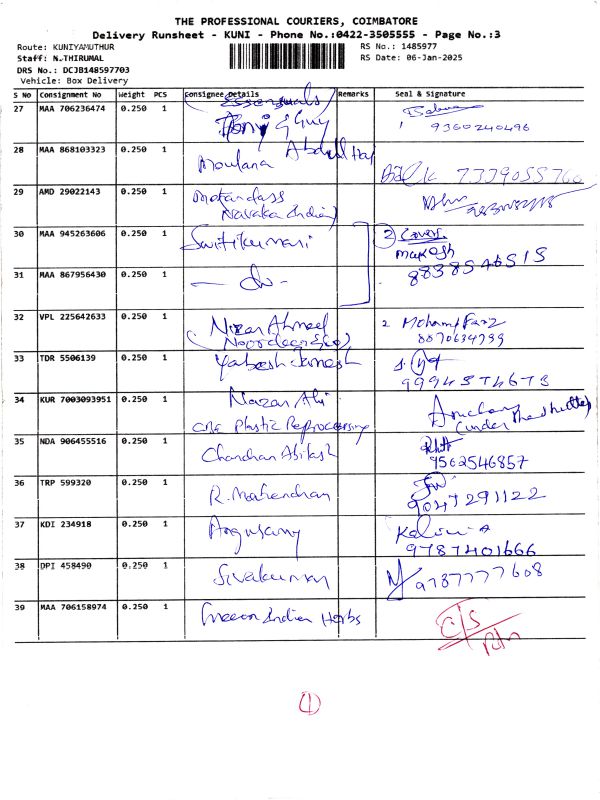 THE PROFESSIONAL COURIERS, COIMBATORE
Delivery Runsheet - KUNI - Phone No.:0422-3505555 - Page No.:3
Route: KUNIYAMUTHUR
RS No.: 1485977
Staff: N.THIRUMAL
RS Date: 06-Jan-2025
DRS No.: DCJB148597703
Vehicle: Box Delivery
S No Consignment No Weight PCS Consignee Details Remarks Seal & Signature
27 MAA 706236474 0.250 1 Essensuals
Toni & Guy
9360240496
28 MAA 868103323 0.250 1 Moulana Abdul Haj
29 AMD 29022143 0.250 1
Navaka India)
30 MAA 945263606 0.250 1 Switikumari 2 Covers
Mukesh
8838546515
31 MAA 867956430 0.250 1 - do -
32 VPL 225642633 0.250 1 Nizar Ahmed 2 Mohamd
(Noordeen & co)
33 TDR 5506139 0.250 1
9994574673
34 KUR 7003093951 0.250 1 Nazar Ali
Plastic Reprocessing
35 NDA 906455516 0.250 1 Chandran Abilash
9562546857
36 TRP 599320 0.250 1 R. Mahendran
9047291122
37 KDI 234918 0.250 1 Angusamy
9787401666
38 DPI 458490 0.250 1 Sivakumar 9787777608
39 MAA 706158974 0.250 1 Green Indian Herbs
C/S
1